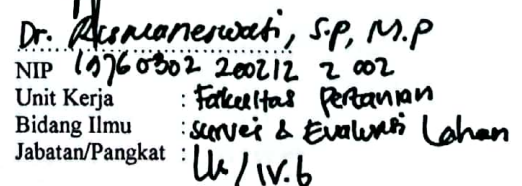 Dr. Rismaneswati, S.P, M.P
NIP 19760302 200212 2 002
Unit Kerja : Fakultas Pertanian
Bidang Ilmu : Survei & Evaluasi Lahan
Jabatan/Pangkat : Lk / IV.b